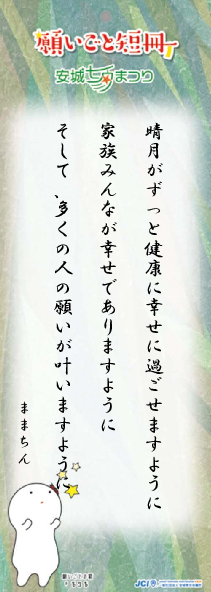 願いごと短冊
安城七夕まつり
晴月がずっと健康に幸せに過ごせますように
家族みんなが幸せでありますように
そして、多くの人の願いが叶いますように
ままちん
JCI